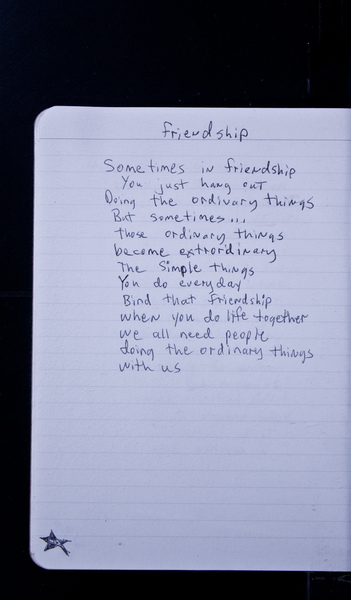 friendship
Sometimes in friendship
You just hang out
Doing the ordinary things
But sometimes...
those ordinary things
become extrordinary
The simple things
You do everyday
Bind that friendship
when you do life together
we all need people
doing the ordinary things
with us